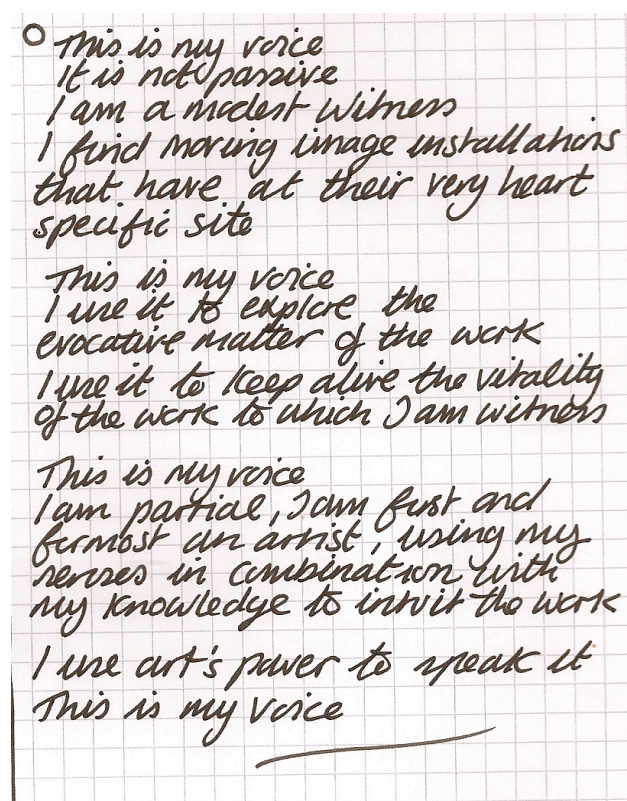 This is my voice
It is not passive
I am a modest witness
I find moving image installations
that have at their very heart
specific site
This is my voice
I use it to explore the
evocative matter of the work
I use it to keep alive the vitality
of the work to which I am witness
This is my voice
I am partial, I am first and
formost an artist, using my
senses in combination with
my knowledge to intuit the work
I use art's power to speak it
This is my voice